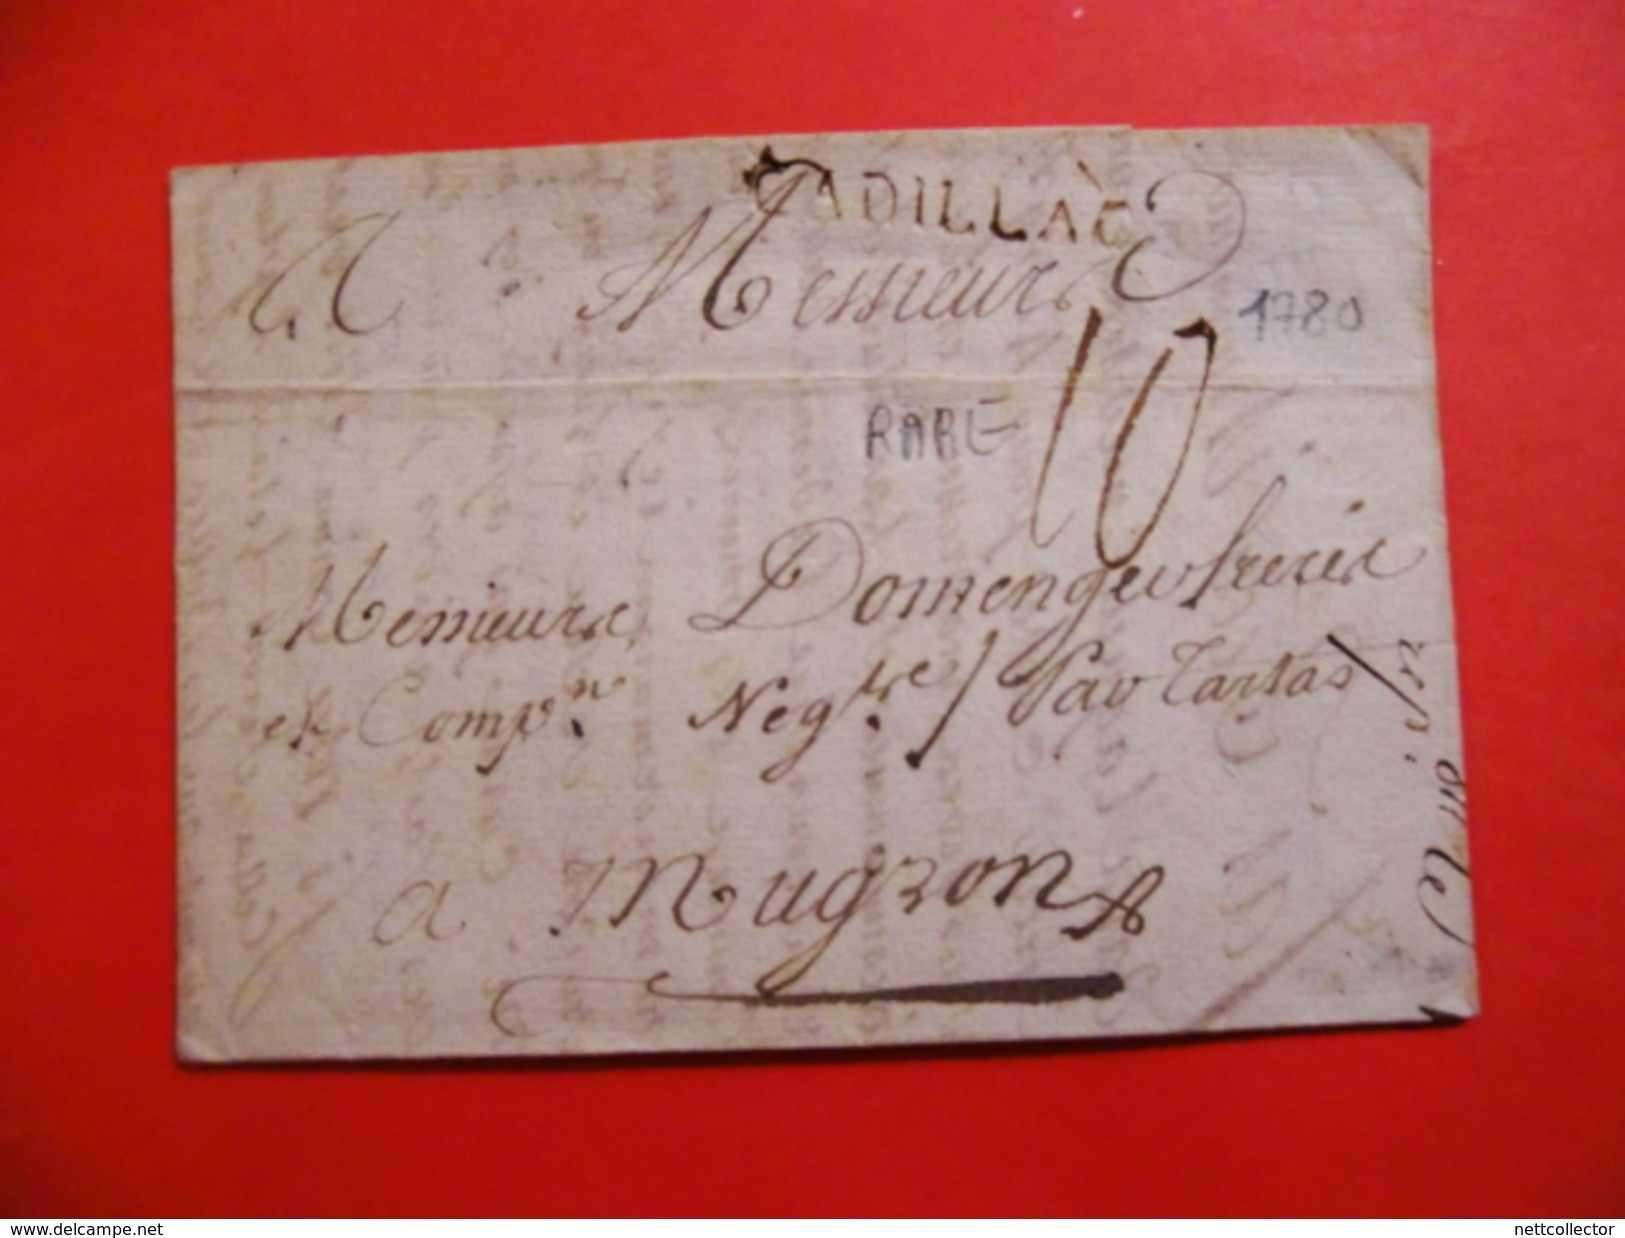 CADILLAC
A Messieurs
1780
10
RARE
Messieurs Domenget freres
et Comp.n Neg.tre / Par Tartas
a Mugron
rep. le
www.delcampe.net
nettcollector